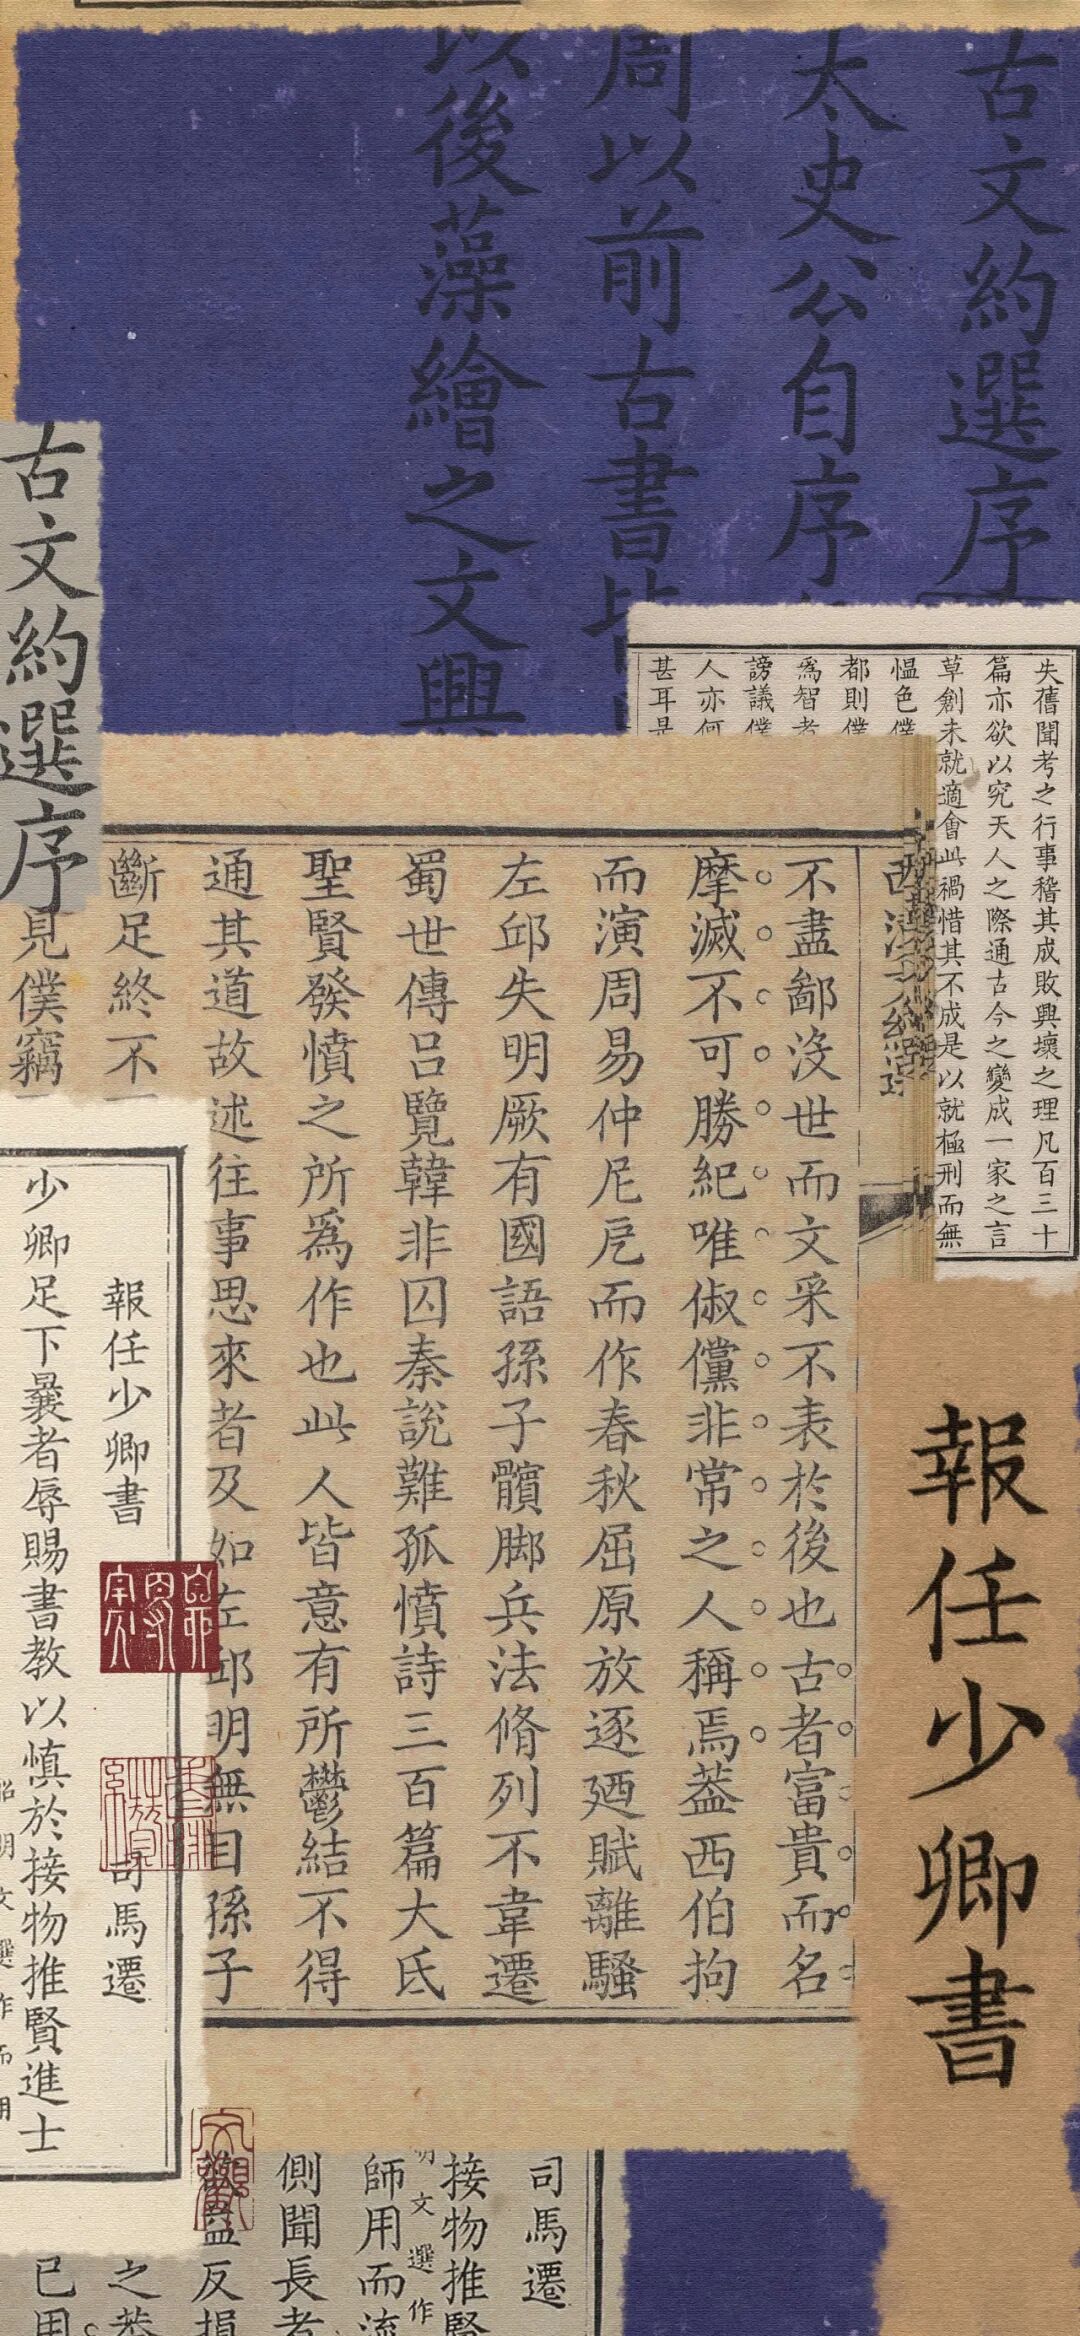 古文約選序
太史公自序
周以前古書
以後藻繪之文興
失舊聞考之行事稽其成敗興壞之理凡百三十
篇亦欲以究天人之際通古今之變成一家之言
草創未就適會此禍惜其不成是以就極刑而無
慍色僕
都則僕
爲智者
謗議僕
人亦何
甚耳是
古文約選序
不盡鄙沒世而文采不表於後也古者富貴而名
摩滅不可勝紀唯俶儻非常之人稱焉葢西伯拘
而演周易仲尼戹而作春秋屈原放逐廼賦離騷
左邱失明厥有國語孫子髕脚兵法脩列不韋遷
蜀世傳呂覽韓非囚秦說難孤憤詩三百篇大氐
聖賢發憤之所爲作也此人皆意有所鬱結不得
通其道故述往事思來者及如左邱明無目孫子
斷足終不
見僕竊
報任少卿書
報任少卿書
司馬遷
少卿足下曩者辱賜書教以慎於接物推賢進士
明文選作而用
司馬遷
接物推賢
明文選作
師用而流
側聞長者
益反損
之恭
已用